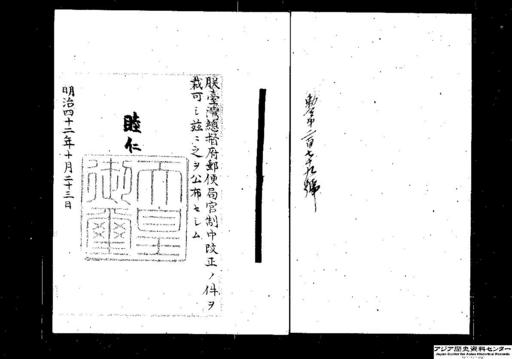 勅令第二百七十九號
朕臺灣總督府郵便局官制中改正ノ件ヲ
裁可シ茲ニ之ヲ公布セシム
睦仁
天皇
御璽
明治四十二年十月二十三日
アジア歴史資料センター
Japan Center for Asian Historical Records